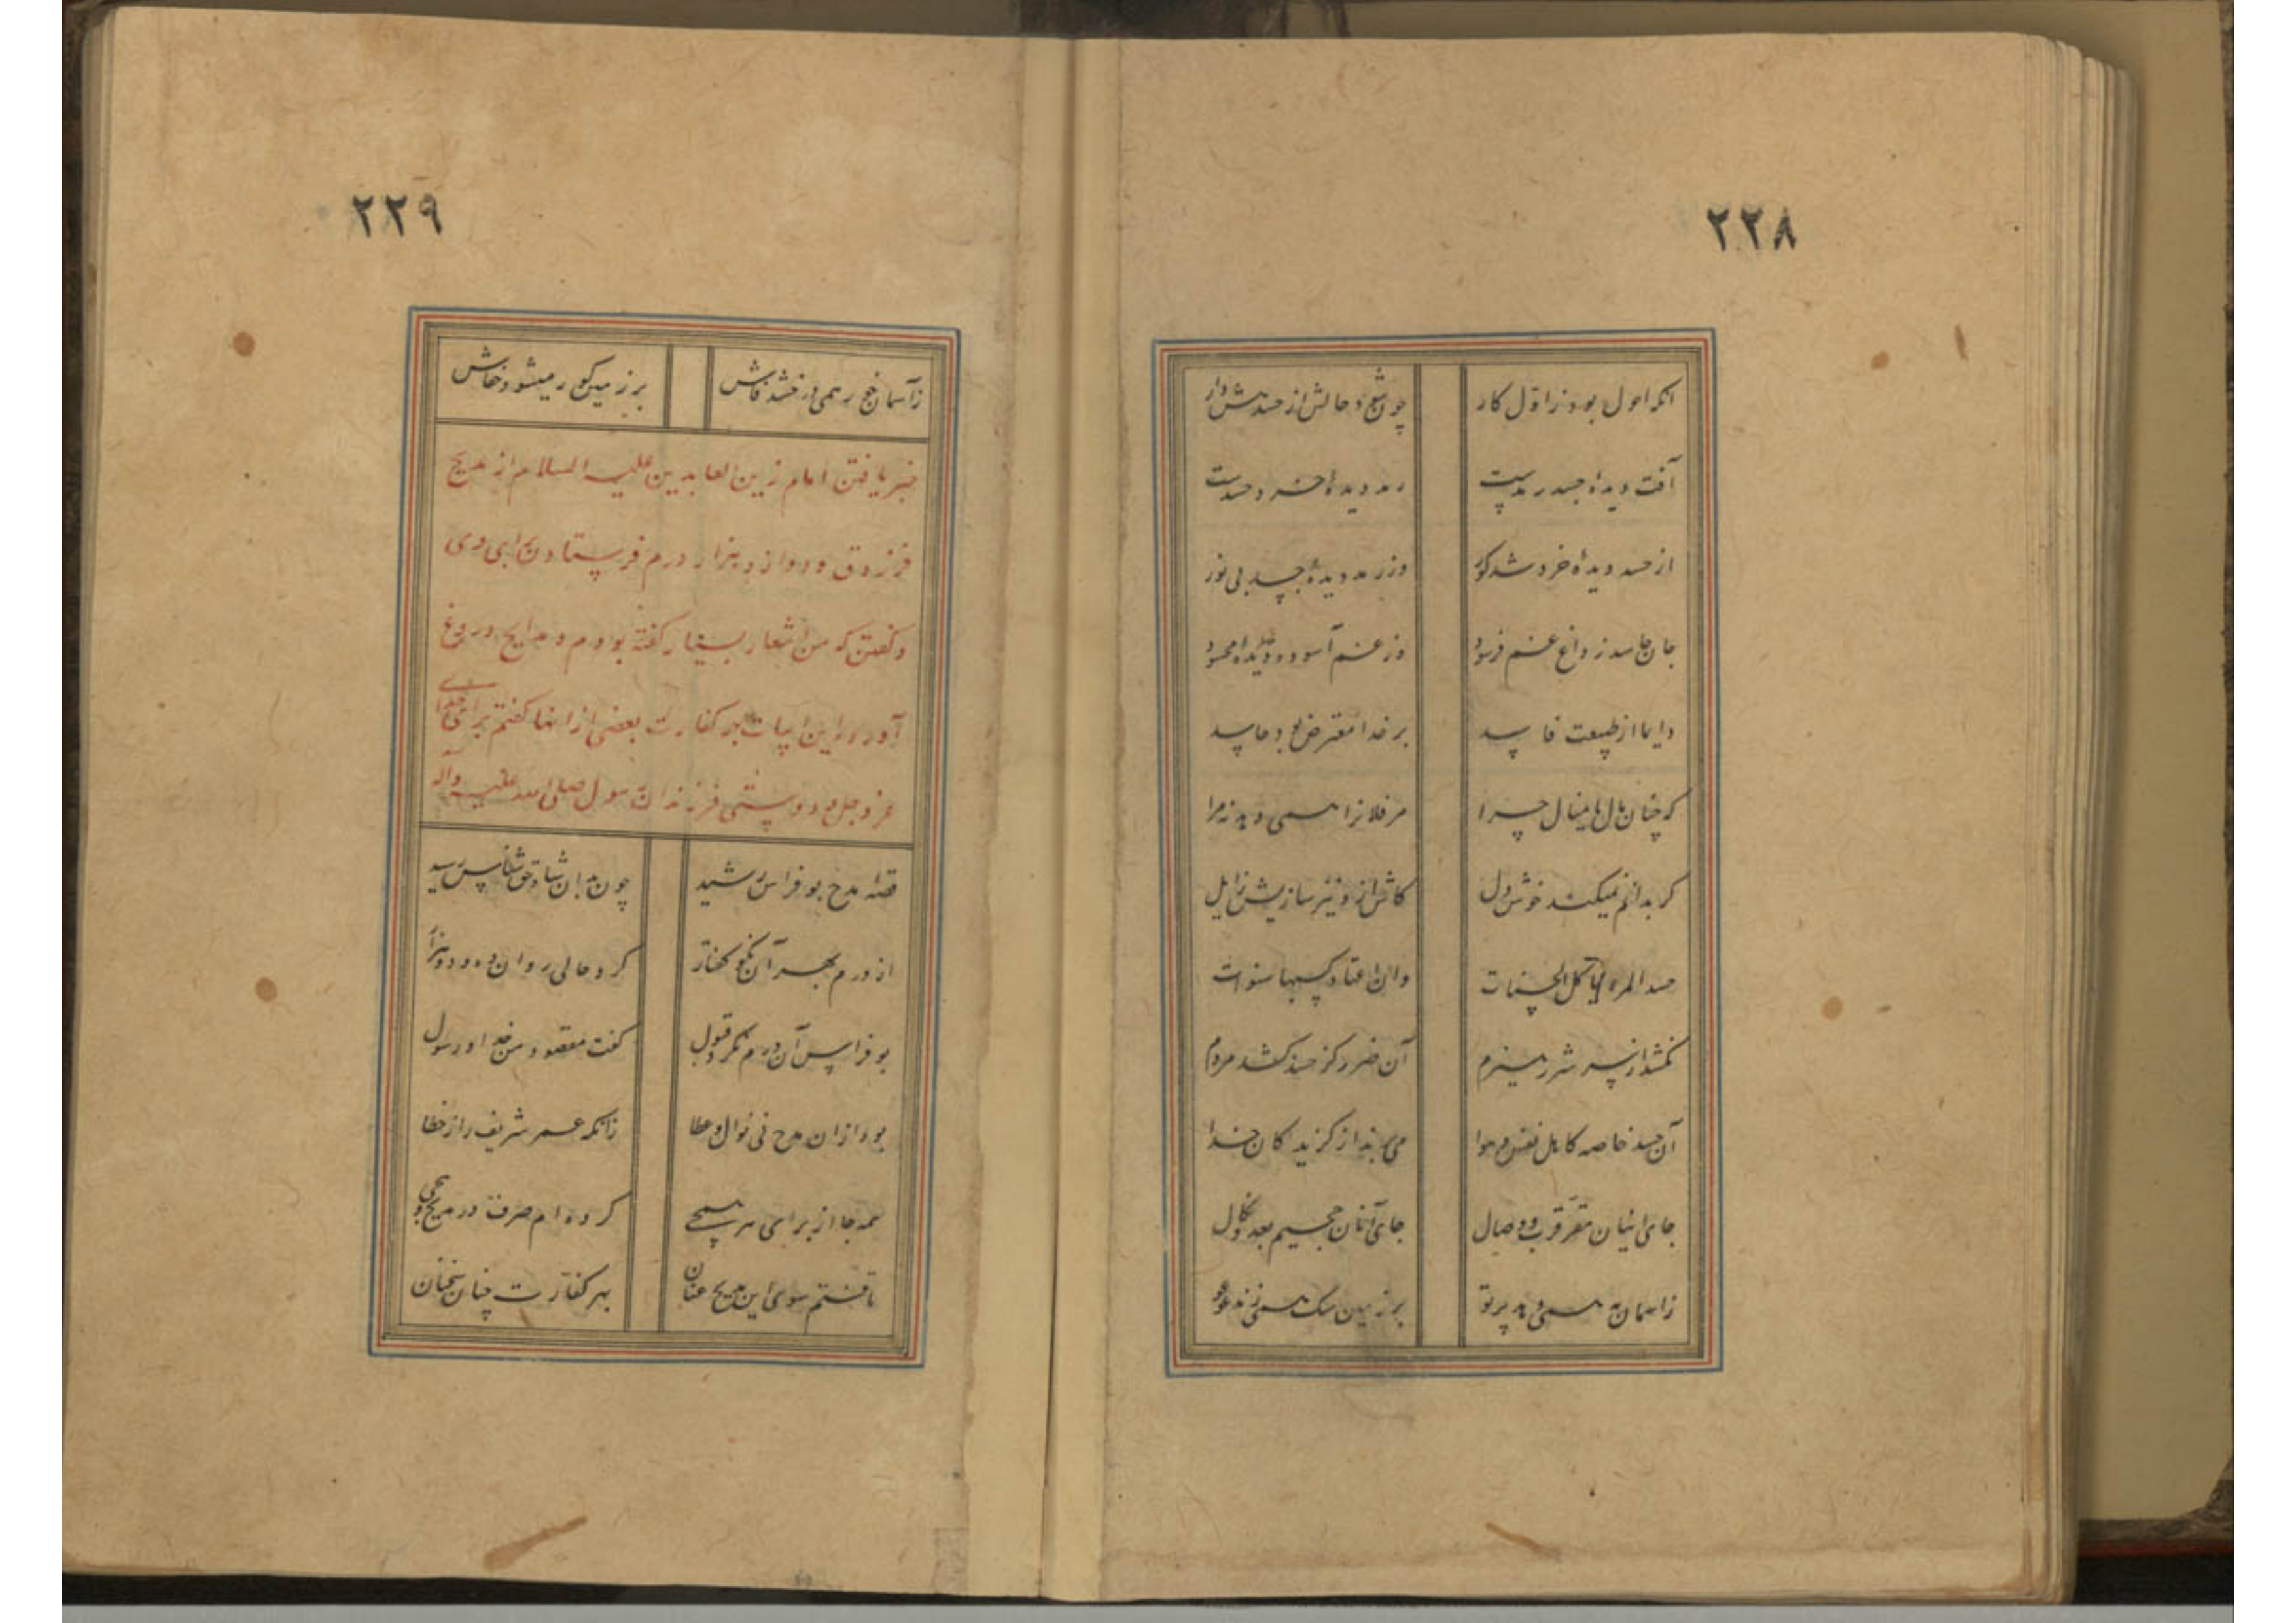 ۲۲۸
آنکه احول بود ز اول کار
چون شود حالش از حسد هش دار
آفت دیده حسد رمدست
رمد دیده خرد حسدست
از حسد دیده خرد شد کور
وز رمد دیده جسد بی نور
جان حاسد ز داغ غم فرسود
وز غم آسوده دیده محسود
دایما از طبیعت فاسد
بر خدا معترض بود حاسد
که چنان مال یا منال چرا
مر فلانرا همی دهد نه مرا
گر بدانم نمیکند خوش دل
کاش از و نیز سازیش زایل
حسد المرء یاکل الحسنات
و ان اعتاد کسبها سنوات
نکشد از پسر شرر هیزم
آن ضرر کز حسد کشد مردم
آن حسد خاصه کاهل نفس و هوا
می برند از گزیدگان خدا
جای اینان مقر قرب و وصال
جای آنان جحیم بعد و نکال
ز آسمان مه همی دهد پرتو
بر زمین سگ همی زند عوعو
۲۲۹
ز آسمان خور همی درخشد فاش
بر زمین کور میشود خفاش
خبر یافتن امام زین العابدین علیه السلام از مدیح
فرزدق و دوازده هزار درم فرستادن بجای وی
و گفتن که من اشعار بسیار گفته بودم و مدایح دروغ
آورده و این ابیات بهر کفارت بعضی از انها گفتم برای خدای
عز و جل و دوستی فرزندان رسول صلی الله علیه و آله
قصه مدح بو فراس رشید
چون بدان شاه حق شناس رسید
از درم بهر آن نکو گفتار
کرد حالی روان ده و دو هزار
بو فراس آن درم نکرد قبول
گفت مقصود من خدا و رسول
بود از ان مدح نی نوال و عطا
زانکه عمر شریف را ز خطا
همه جا از برای هر همجی
کرده ام صرف در مدیح و هجی
تافتم سوی این مدیح عنان
بهر کفارت چنان سخنان